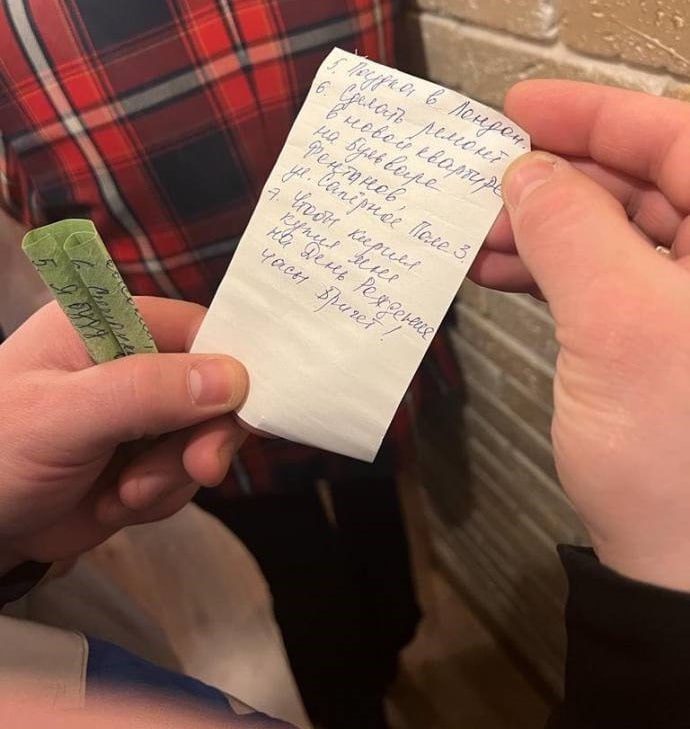 5. Поездка в Лондон.
6. Сделать ремонт
в новой квартире
на Бульваре
Фонтанов,
ул. Сапёрное Поле 3
7. Чтобы кирил
купил мне
на День Рождения
часы Бригет!
5. Я
6.